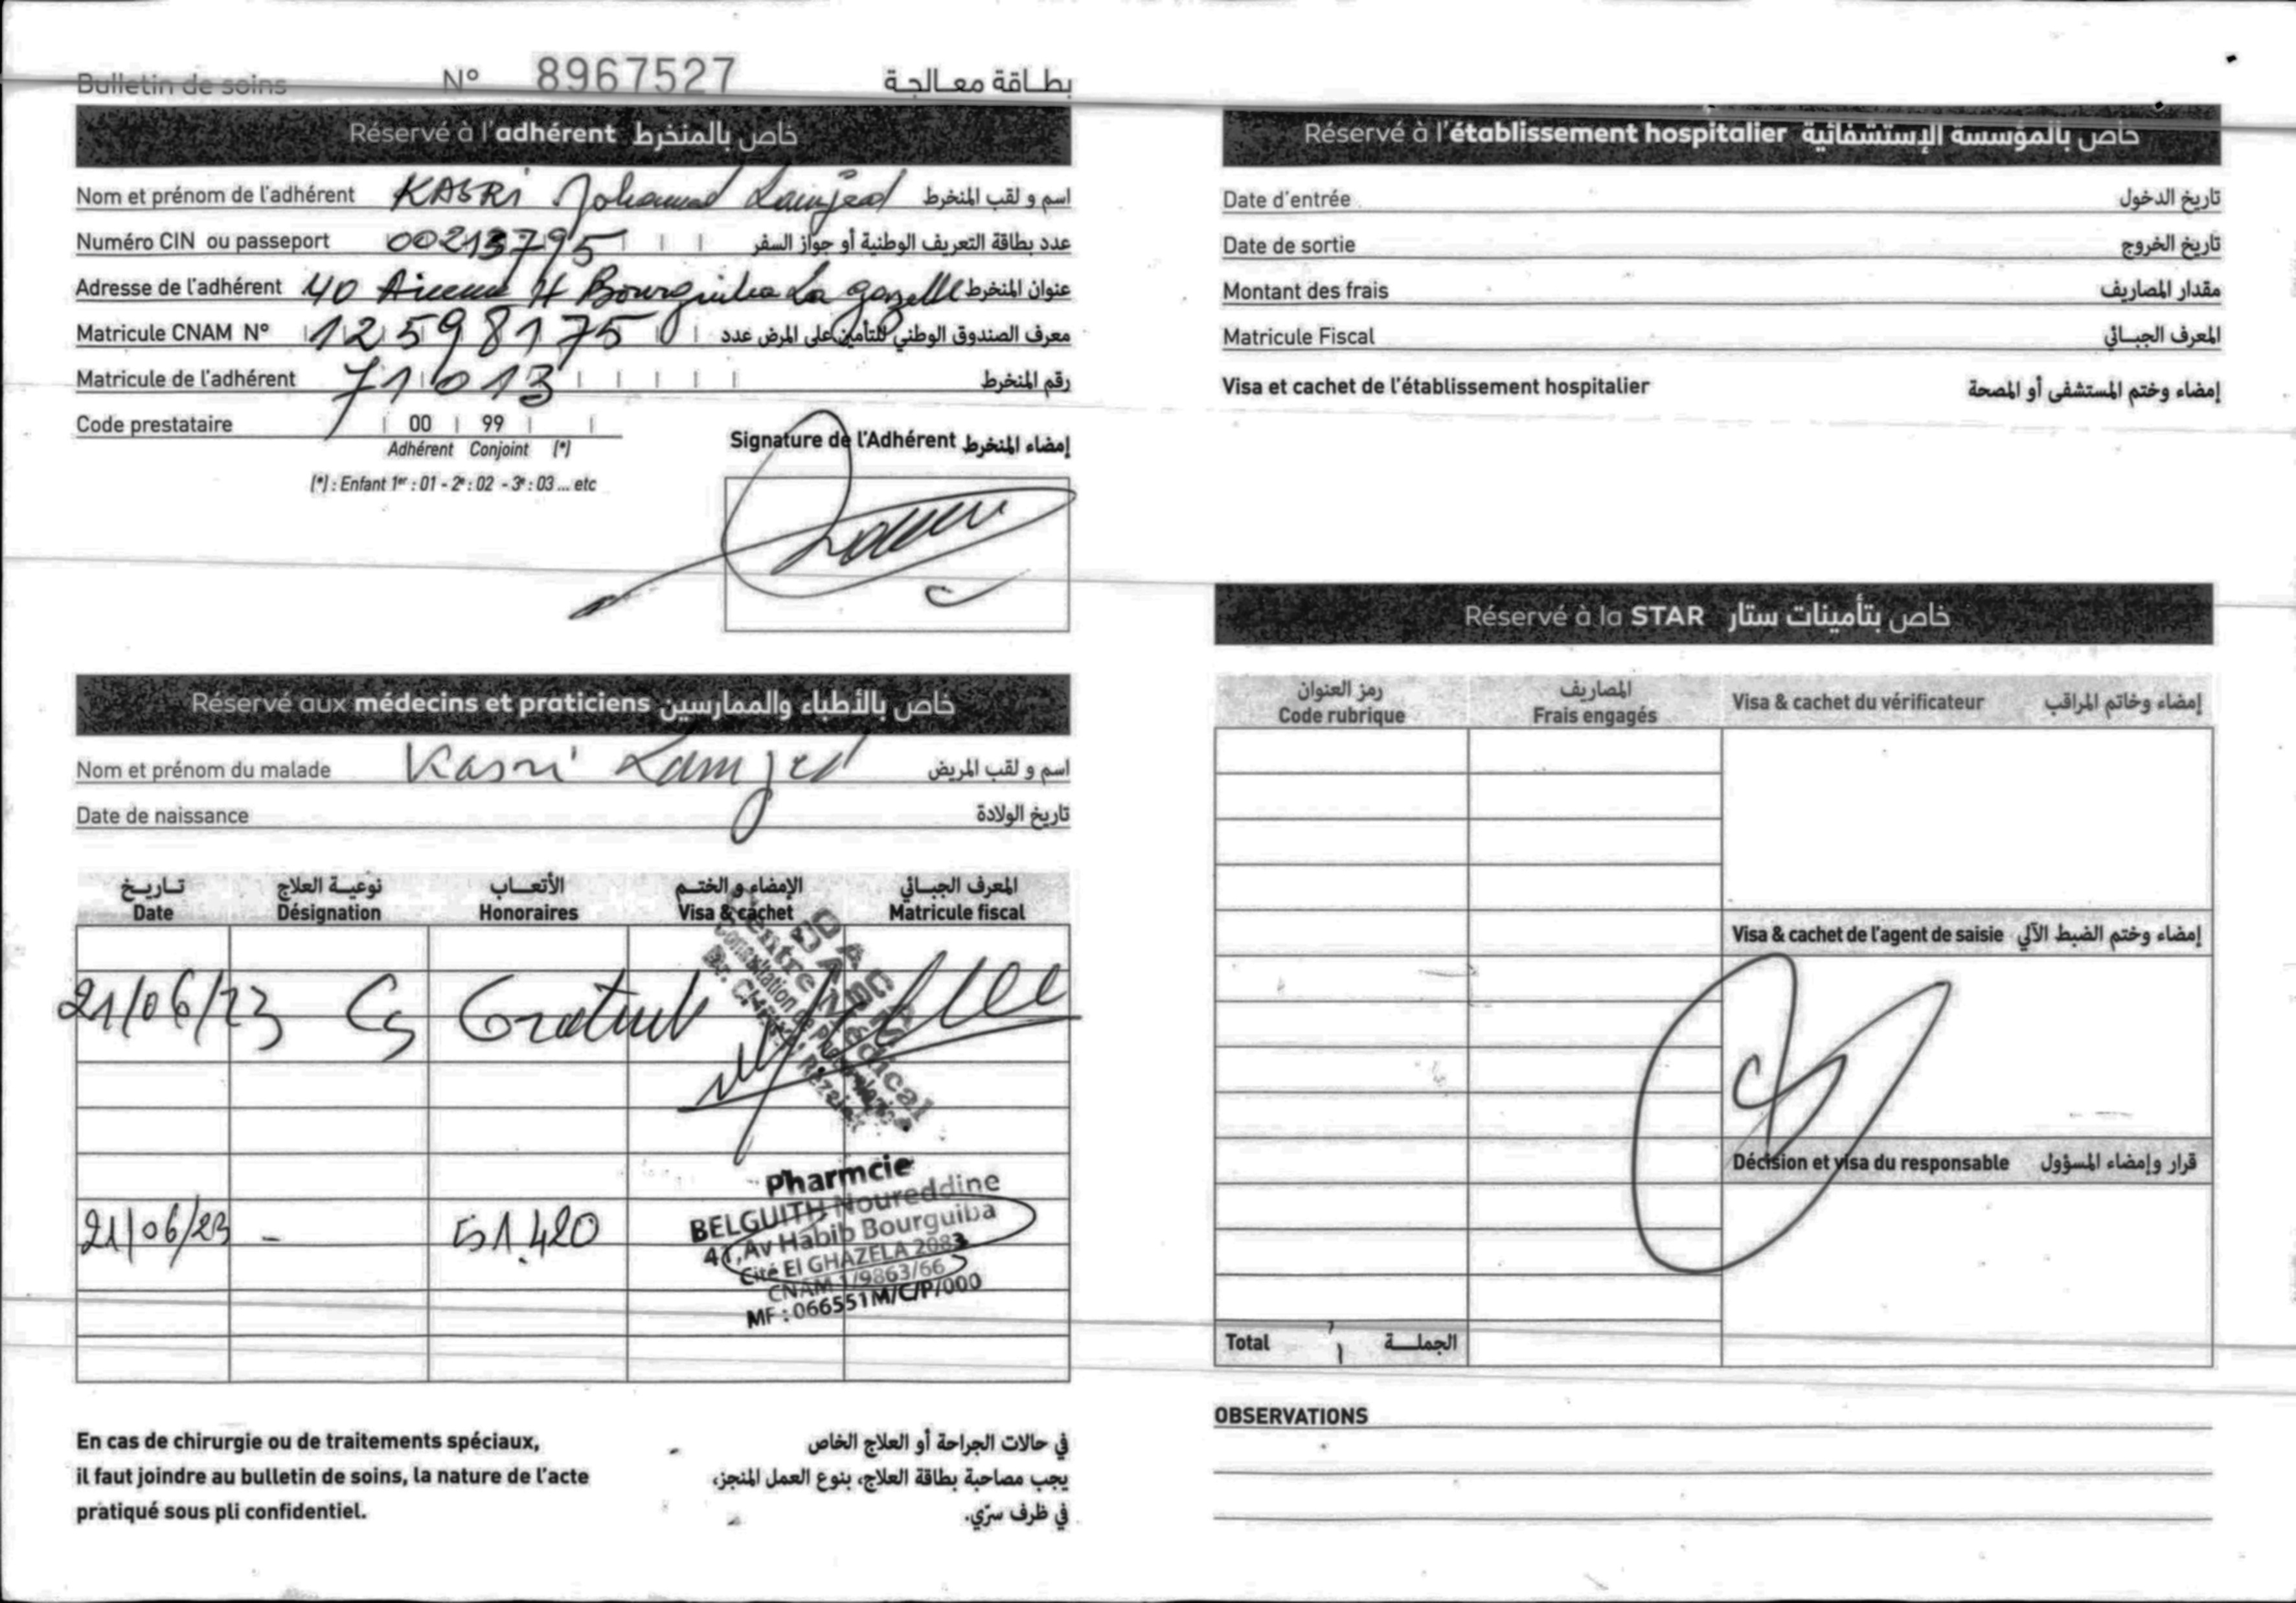 Bulletin de soins N° 8967527 بطاقة معالجة
Réservé à l'adhérent خاص بالمنخرط
Nom et prénom de l'adhérent KASRI Mohamed Lamjed اسم و لقب المنخرط
Numéro CIN ou passeport 00213795 عدد بطاقة التعريف الوطنية أو جواز السفر
Adresse de l'adhérent 40 Avenue H Bourguiba La gazelle عنوان المنخرط
Matricule CNAM N° 12598175 معرف الصندوق الوطني للتأمين على المرض عدد
Matricule de l'adhérent 71013 رقم المنخرط
Code prestataire 00 99
Adhérent Conjoint (*)
(*) : Enfant 1er : 01 - 2e : 02 - 3e : 03 ... etc
Signature de l'Adhérent إمضاء المنخرط
Réservé aux médecins et praticiens خاص بالأطباء والممارسين
Nom et prénom du malade Kasri Lamjed اسم و لقب المريض
Date de naissance تاريخ الولادة
تاريخ نوعية العلاج الأتعاب الإمضاء و الختم المعرف الجبائي
Date Désignation Honoraires Visa & cachet Matricule fiscal
21/06/23 Cs Gratuit
Centre Médical
Consultation de
Dr.
Pharmcie
BELGUITH Noureddine
41, Av Habib Bourguiba
Cité El GHAZELA 2083
CNAM 1/9863/66
MF : 066551M/C/P/000
21/06/23 - 51.420
En cas de chirurgie ou de traitements spéciaux,
il faut joindre au bulletin de soins, la nature de l'acte
pratiqué sous pli confidentiel.
في حالات الجراحة أو العلاج الخاص
يجب مصاحبة بطاقة العلاج، بنوع العمل المنجز،
في ظرف سرّي.
Réservé à l'établissement hospitalier خاص بالمؤسسة الإستشفائية
Date d'entrée تاريخ الدخول
Date de sortie تاريخ الخروج
Montant des frais مقدار المصاريف
Matricule Fiscal المعرف الجبائي
Visa et cachet de l'établissement hospitalier إمضاء وختم المستشفى أو المصحة
Réservé à la STAR خاص بتأمينات ستار
رمز العنوان المصاريف
Code rubrique Frais engagés Visa & cachet du vérificateur إمضاء وخاتم المراقب
Visa & cachet de l'agent de saisie إمضاء وختم الضبط الآلي
Décision et visa du responsable قرار وإمضاء المسؤول
Total الجملة
OBSERVATIONS